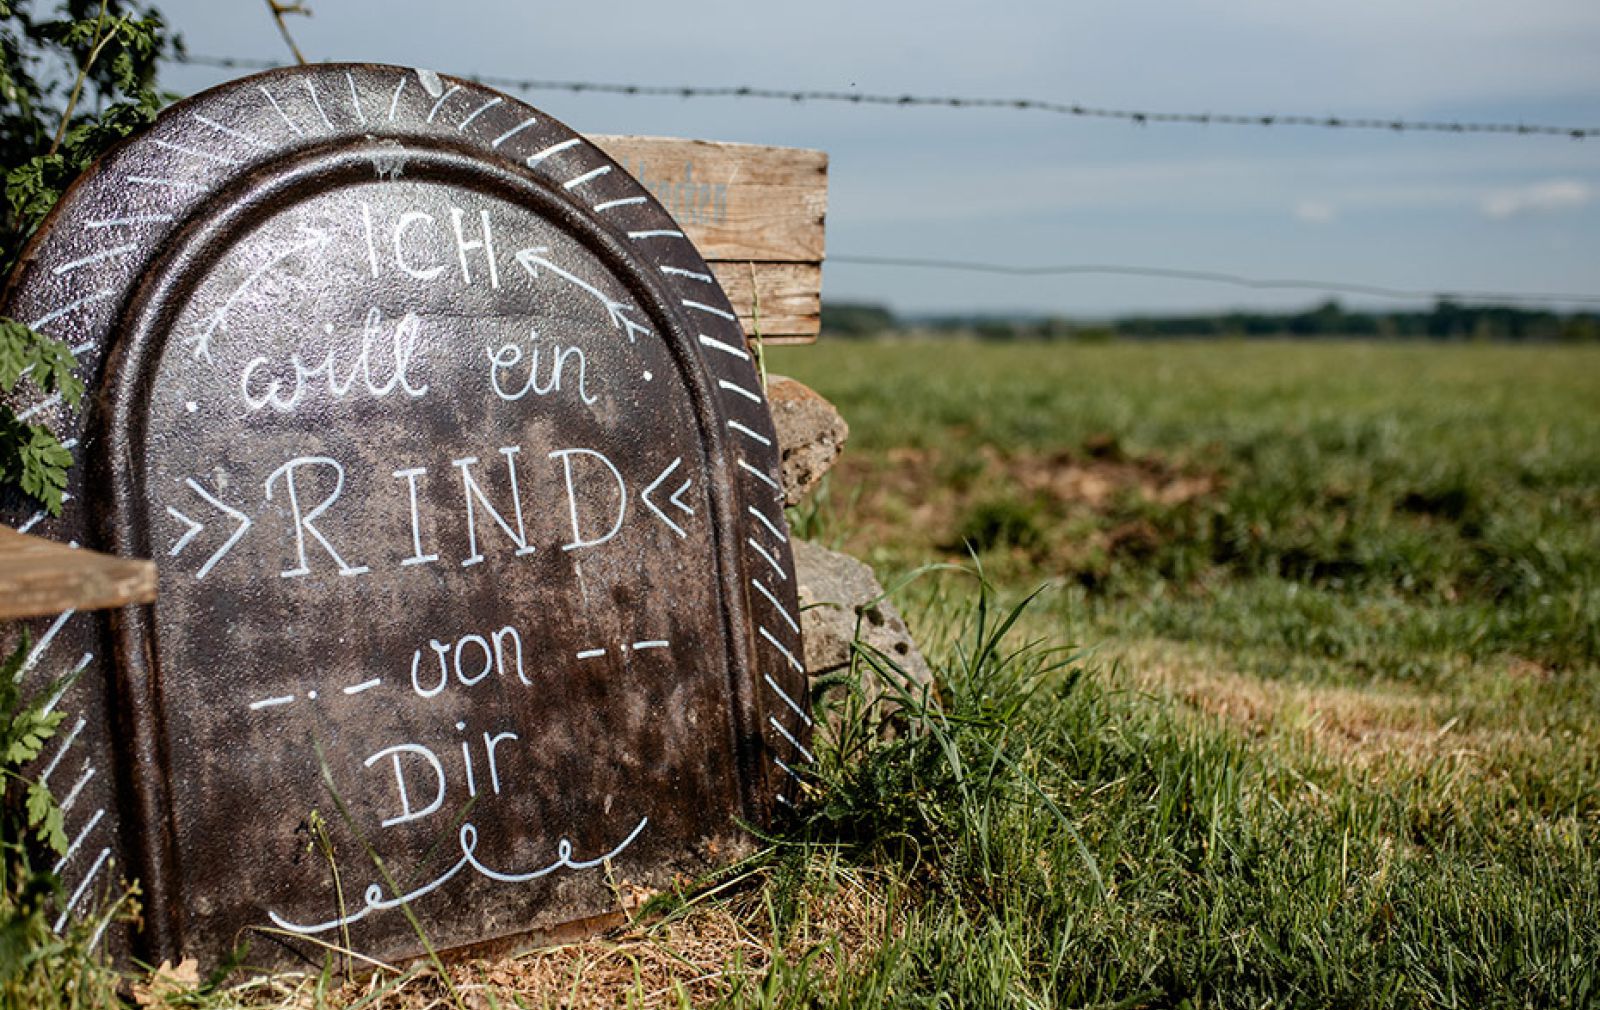 ICH
will ein
RIND
von
Dir